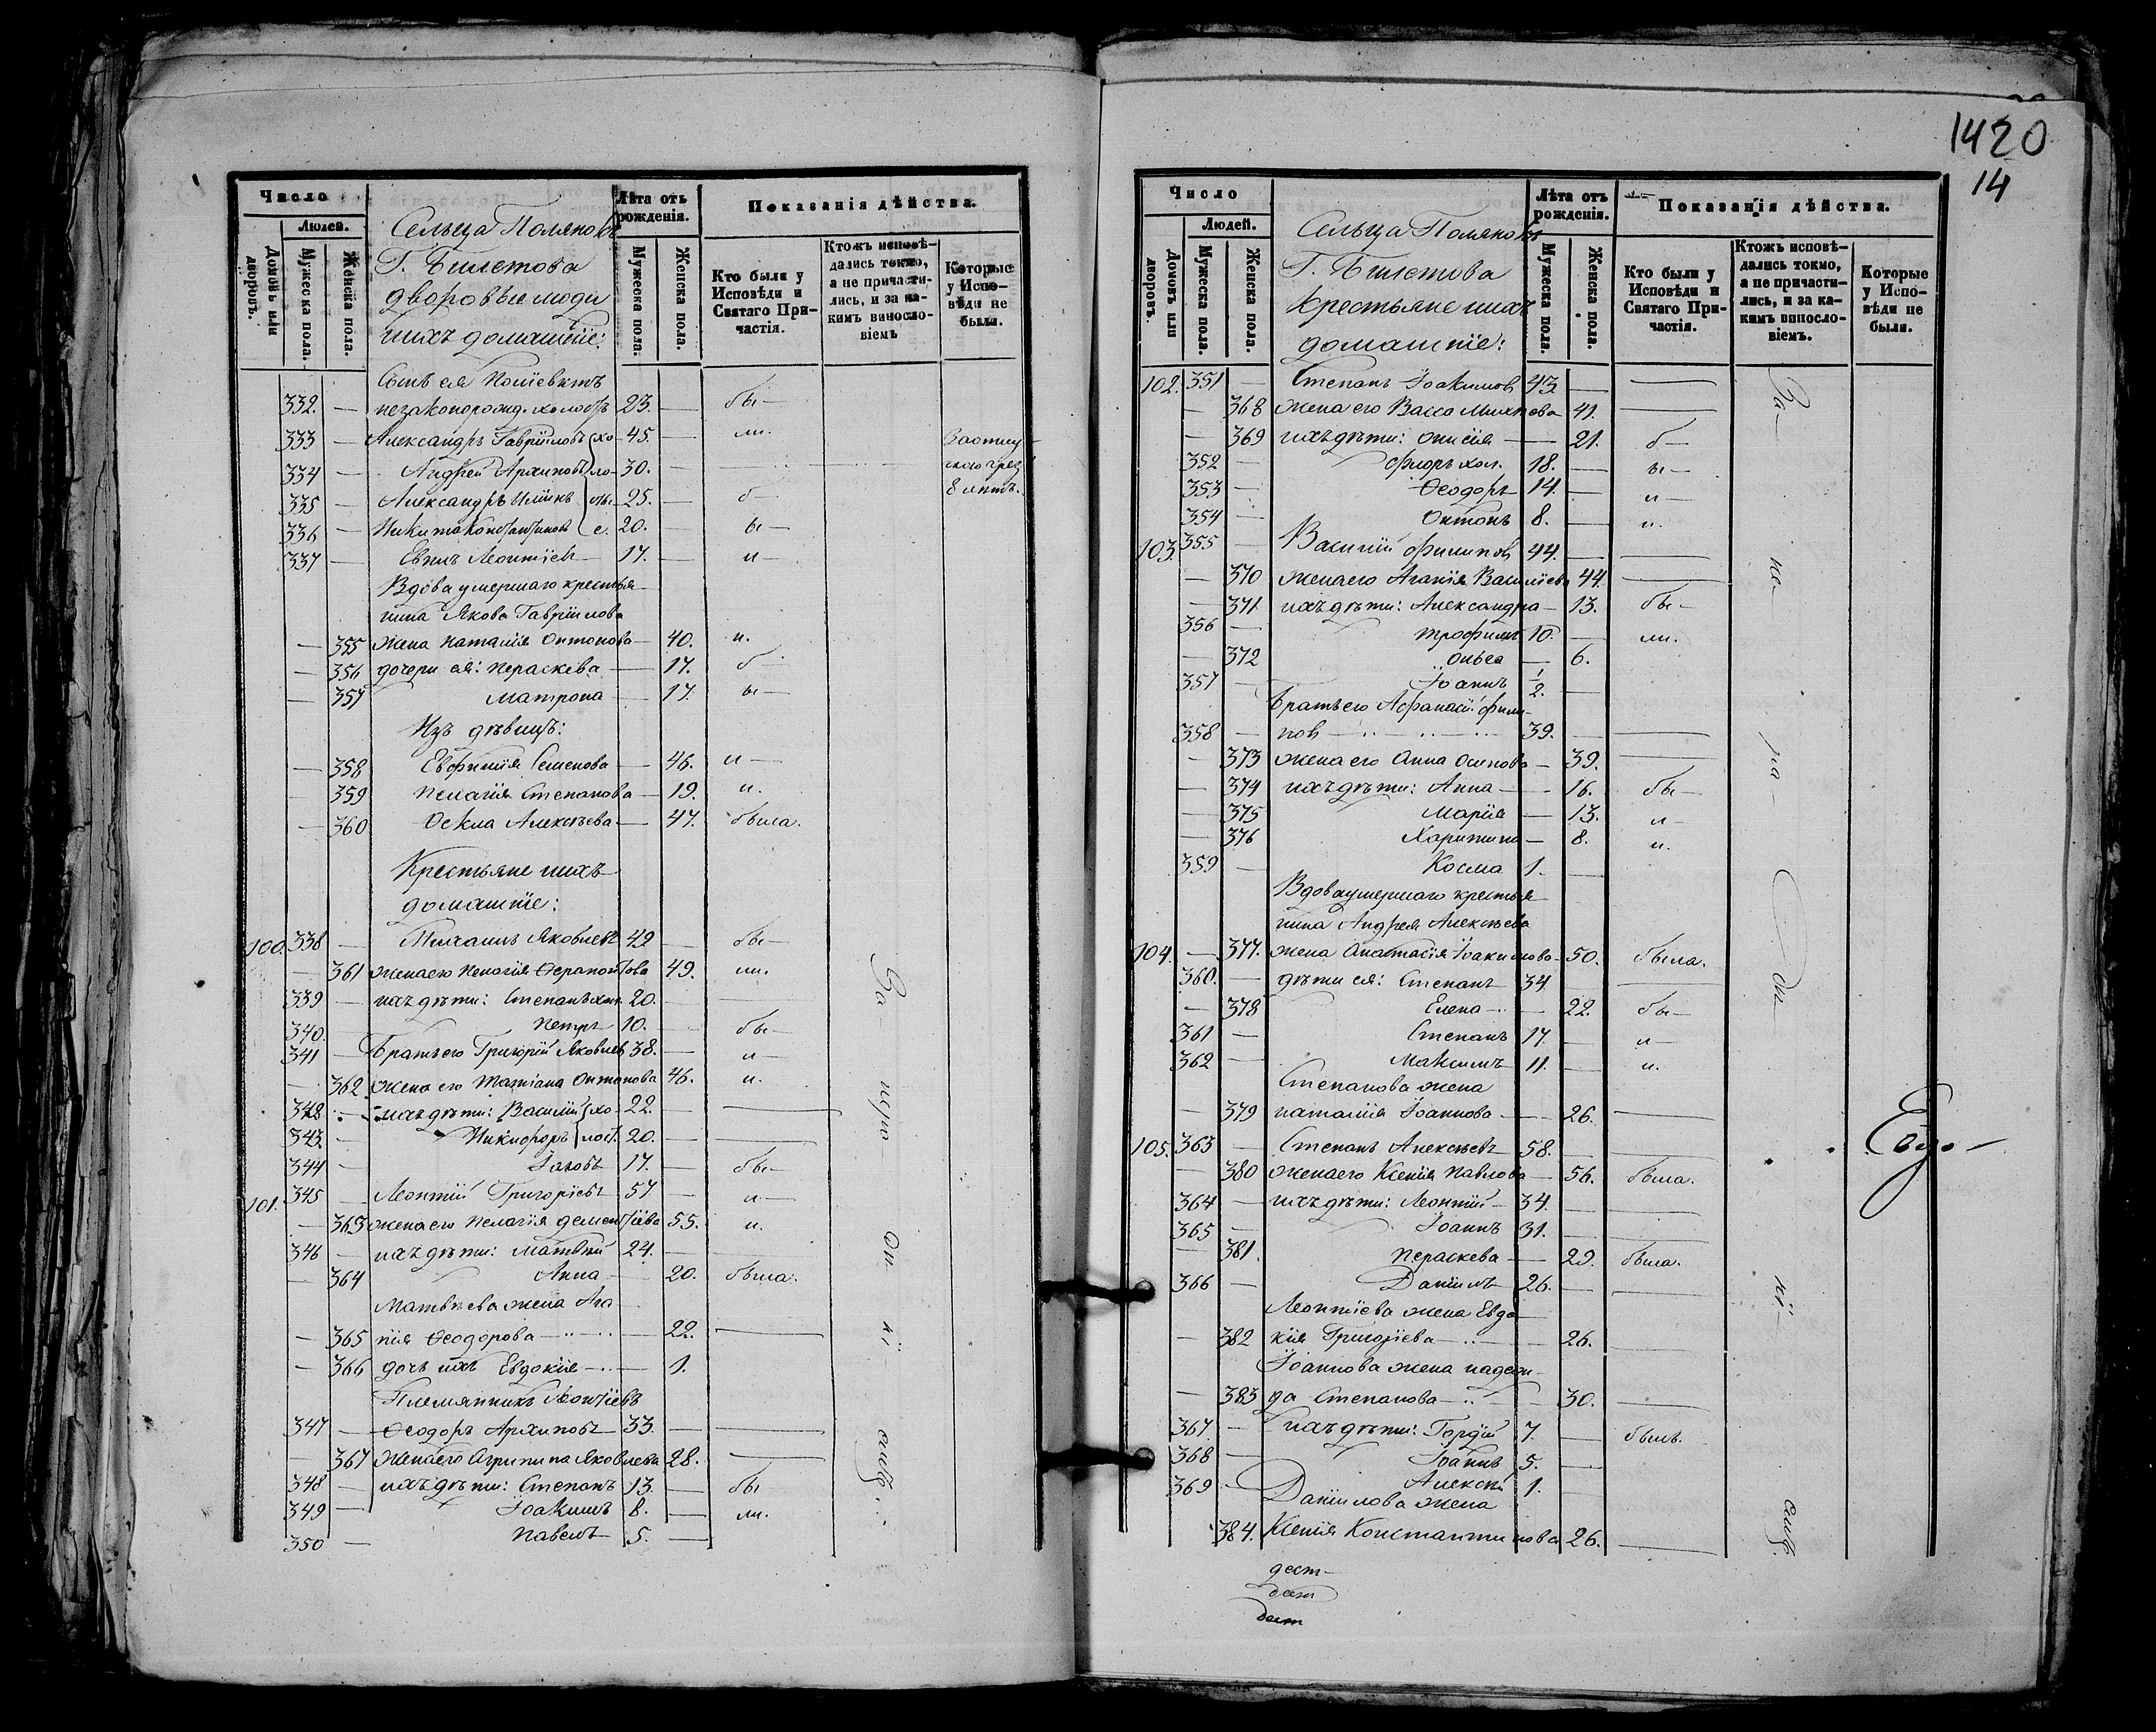 1420
14
Число
Людей.
Домовъ или дворовъ.
Мужеска пола.
Женска пола.
Сельца Поляновъ
Г. Билетова
дворовые люди
ихъ домашніе:
Лѣта отъ рожденія.
Мужеска пола.
Женска пола.
Показанія дѣйства.
Кто были у Исповѣди и Святаго Причастія.
Ктожъ исповѣдались токмо, а не причастились, и за какимъ винословіемъ
Которые у Исповѣди не были.
Сынъ ея
332. — незаконорожд. холостъ 23. — бы—
333 — Александръ Гавріиловъ хо- 45. — ли.
334 — Андрей Архиповъ ло- 30. —
335 — Александръ Иліинъ 25. — б—
336 — Никита Константиновъ 20. — ы—
337 — Евпль Леонтіевъ 17. — л—
8 лѣтъ.
Вдова умершаго крестья-
нина Якова Гавріилова
— 355 жена Наталія Антонова — 40. и.
— 356 дочери ея: Параскева — 17. б
— 357 Матрона — 17. ы—
Изъ дѣвицъ:
— 358 Евфимія Семенова — 46. л—
— 359 Пелагія Степанова — 19. и.
— 360 Ѳекла Алексѣева — 47. была.
Крестьяне ихъ
домашніе:
100. 338 — Михаилъ Яковлевъ 42 — бы—
— 361 жена его Пелагія Ѳерапонтова 49. ли.
339 — ихъ дѣти: Степанъ хол. 20. —
340. Петръ 10. — бы—
341 — Братъ его Григорій Яковлев 38. — л—
— 362 жена его Татіана Антонова 46. и.
342 — ихъ дѣти: Василій хо- 22. —
343 — Никифоръ лост. 20. —
344 — Іаковъ 17. — бы—
101. 345 — Леонтій Григорьевъ 57 — л—
— 363 жена его Пелагія Дементіева 55. и.
346 — ихъ дѣти: Матвѣй 24. —
— 364 Анна — 20. была.
Матвѣева жена Ага-
— 365 пія Ѳеодорова — 22.
— 366 дочь ихъ Евдокія — 1.
Племянникъ Леонтіевъ
347 — Ѳеодоръ Архиповъ 33. —
— 367 Жена его Агрипина Яковлева 28.
348 — ихъ дѣти: Степанъ 13. — бы
349 — Іоакимъ 8. — ли.
350 — Павелъ 5. —
Число
Людей.
Домовъ или дворовъ.
Мужеска пола.
Женска пола.
Сельца Поляновъ
Г. Билетова
Крестьяне ихъ
домашніе:
Лѣта отъ рожденія.
Мужеска пола.
Женска пола.
Показанія дѣйства.
Кто были у Исповѣди и Святаго Причастія.
Ктожъ исповѣдались токмо, а не причастились, и за какимъ винословіемъ.
Которые у Исповѣди не были.
102. 351 — Степанъ Іоакимов 43 —
— 368 жена его Васса 41.
— 369 ихъ дѣти: Анисія — 21. б—
352 — Флоръ хол. 18. — ы—
353 — Ѳеодоръ 14. — л—
354 — Антонъ 8. — и.
103. 355 — Василій Филипов 44. —
— 370 жена его Агапія Василіева 44.
— 371 ихъ дѣти: Александра — 13. бы—
356 — Трофимъ 10. — ли.
— 372 Ольга — 6.
357 — Іоаннъ 1/2. —
Братъ его Афанасій Фили-
358 — пов 39. —
— 373 жена его Анна Осипова — 39.
— 374 ихъ дѣти: Анна — 16. бы—
— 375 Марія — 13. л—
— 376 Харитина — 8. и.
359 — Косма 1. —
Вдова умершаго крестья-
нина Андрея Алексѣева
104. — 377. жена Анастасія Іоакимова 50. была.
360. — дѣти ея: Степанъ 34 —
— 378 Елена — 22. бы—
361 — Степанъ 17. — л—
362 — Максимъ 11. — и.
Степанова жена
— 379 Наталія Іоаннова — 26.
105. 363 — Степанъ Алексѣевъ 58. —
— 380 жена его Ксенія Павлова — 56. была.
364 — ихъ дѣти: Леонтій 34. —
365 — Іоаннъ 31. —
— 381. Параскева — 29. была.
366 — Даніилъ 26. —
Леонтіева жена Евдо-
— 382 кія Григоріева — 26.
Іоаннова жена Надеж-
— 383 да Степанова — 30.
367. — ихъ дѣти: Гордій 7. — былъ.
368 — Іоаннъ 5. —
369 — Алексѣй 1. —
Даніилова жена
384. Ксенія Константинова 26.